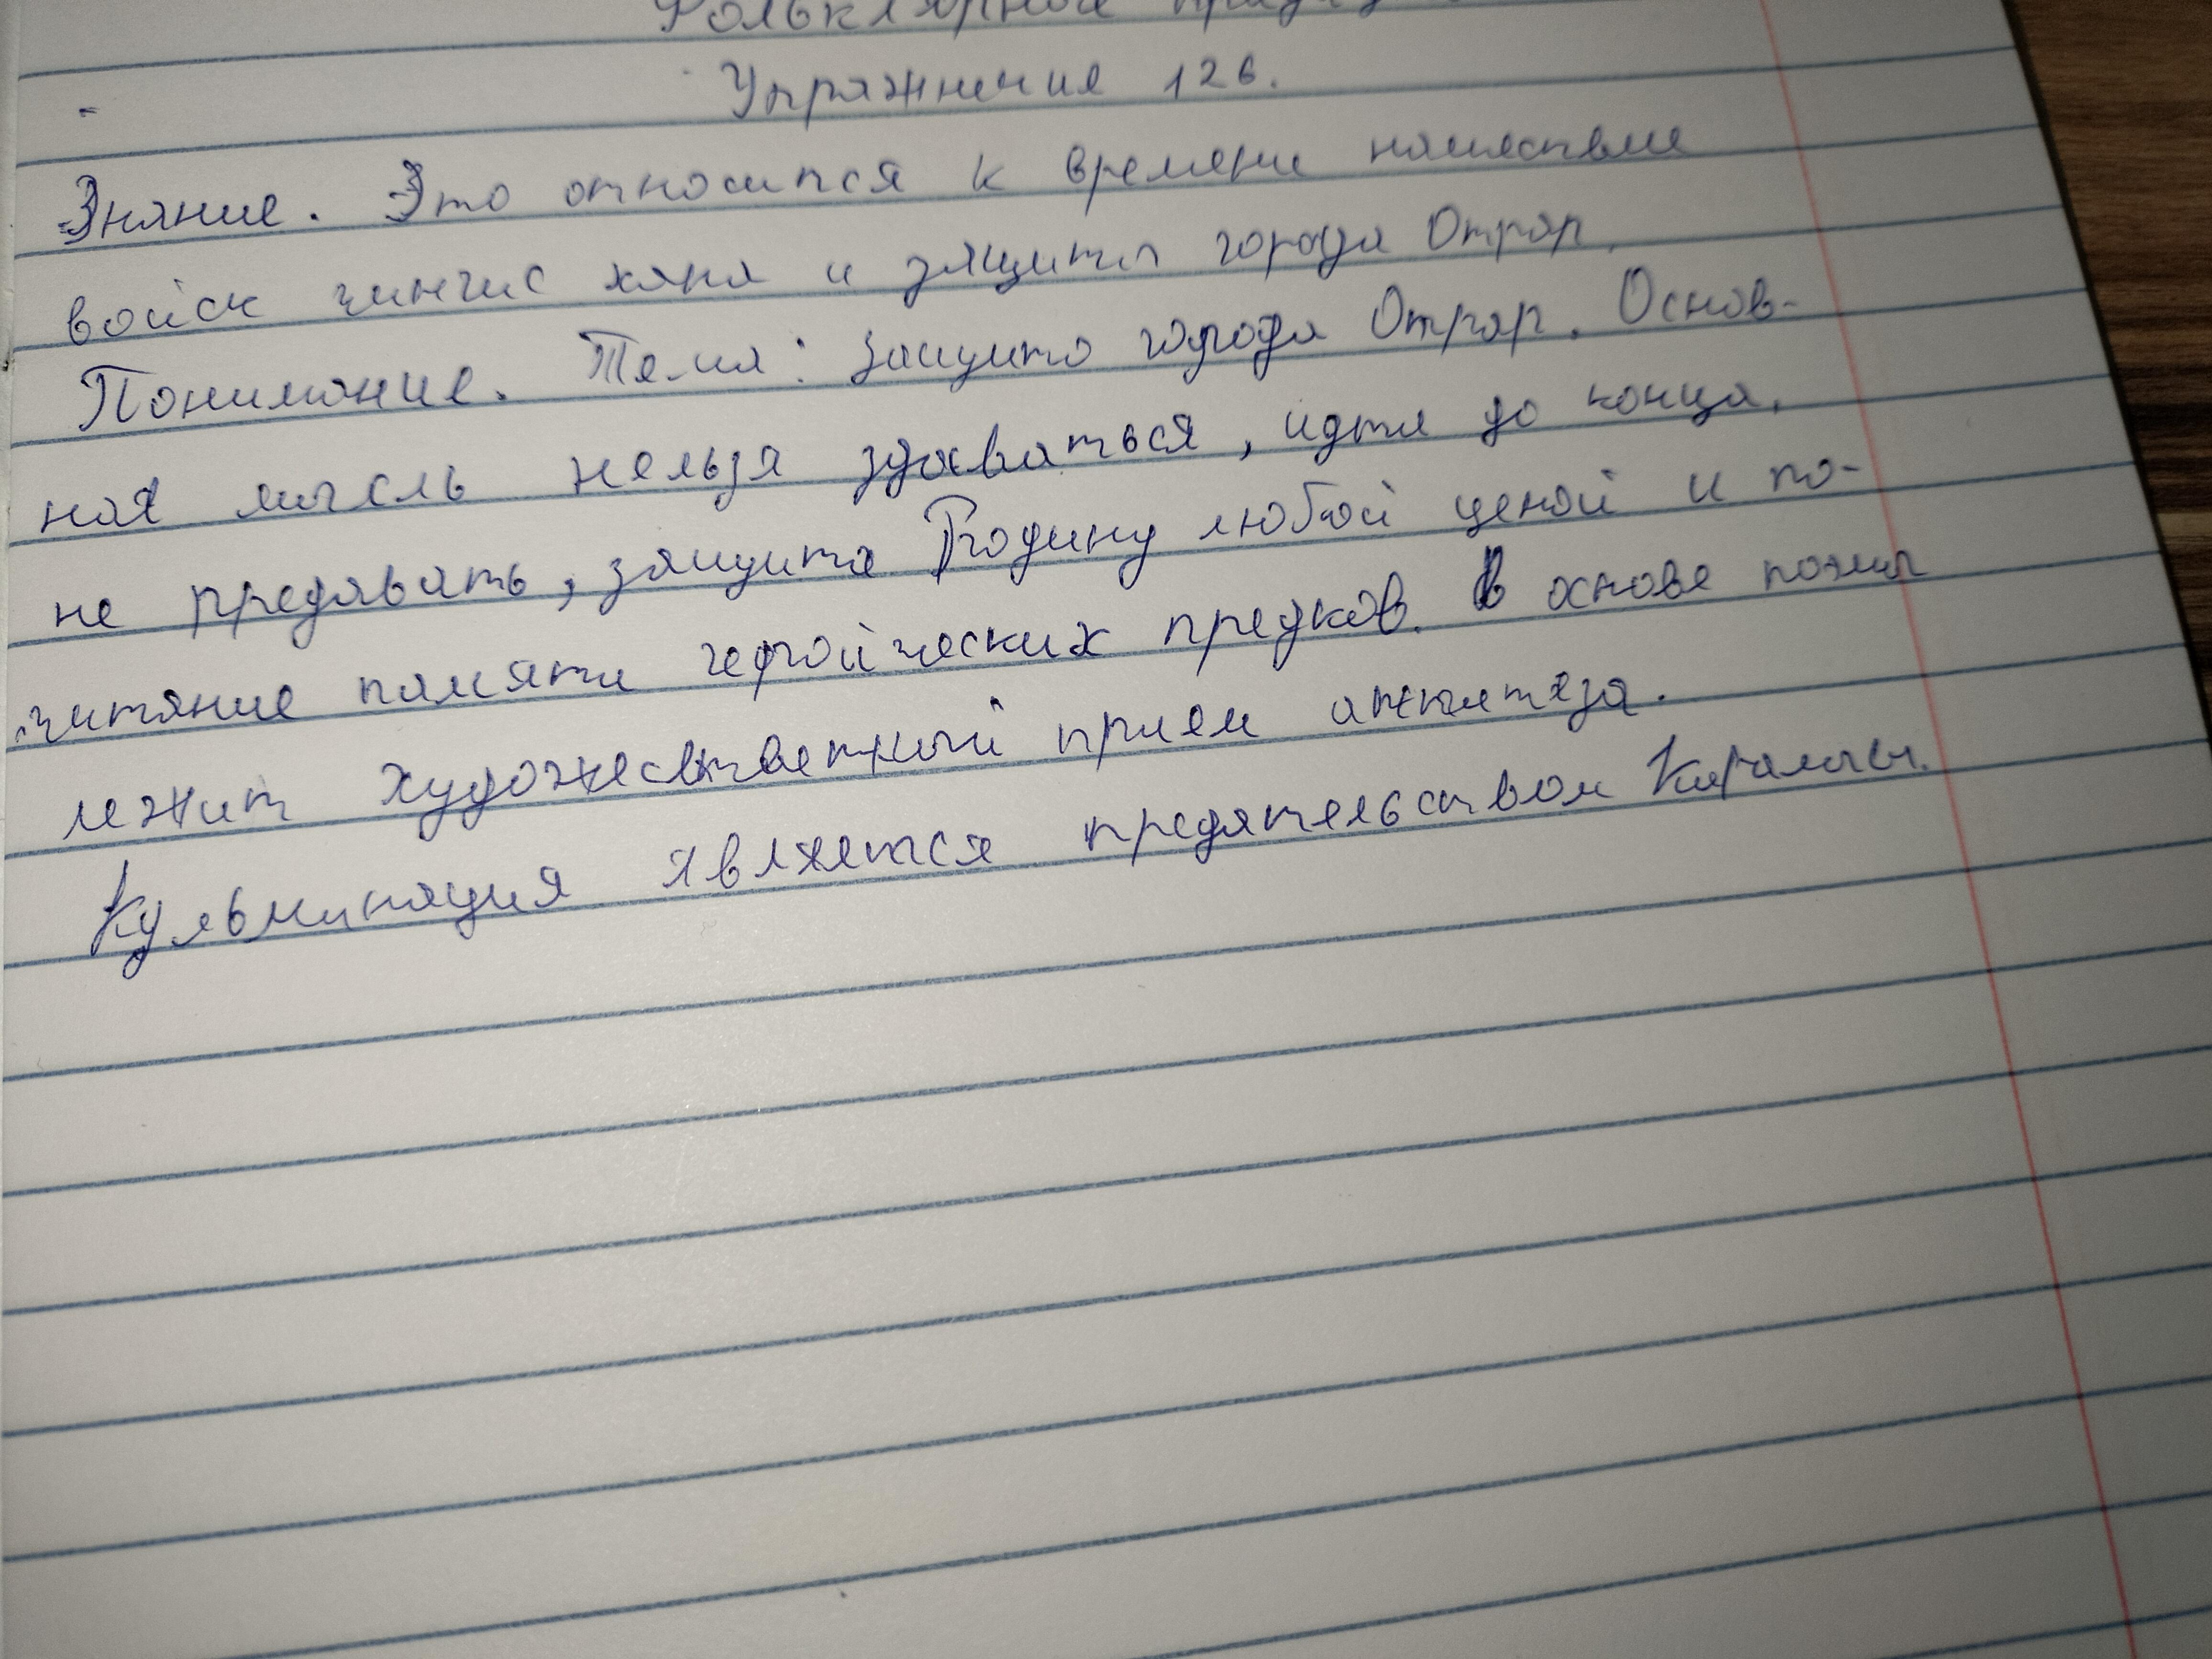 Фольклорное
Упряжнение 126.
Знание. Это относится к времени нашествие
войск чингис хана и защиты города Отрар.
Понимание. Тема: защита города Отрар. Основ-
ная мысль нельзя здаваться, идти до конца,
не предавать, защита Родину любой ценой и по-
читание памяти геройческих предков. В основе поэмы
лежит художественный прием антитеза.
Кульминация является предательством Карагысы.